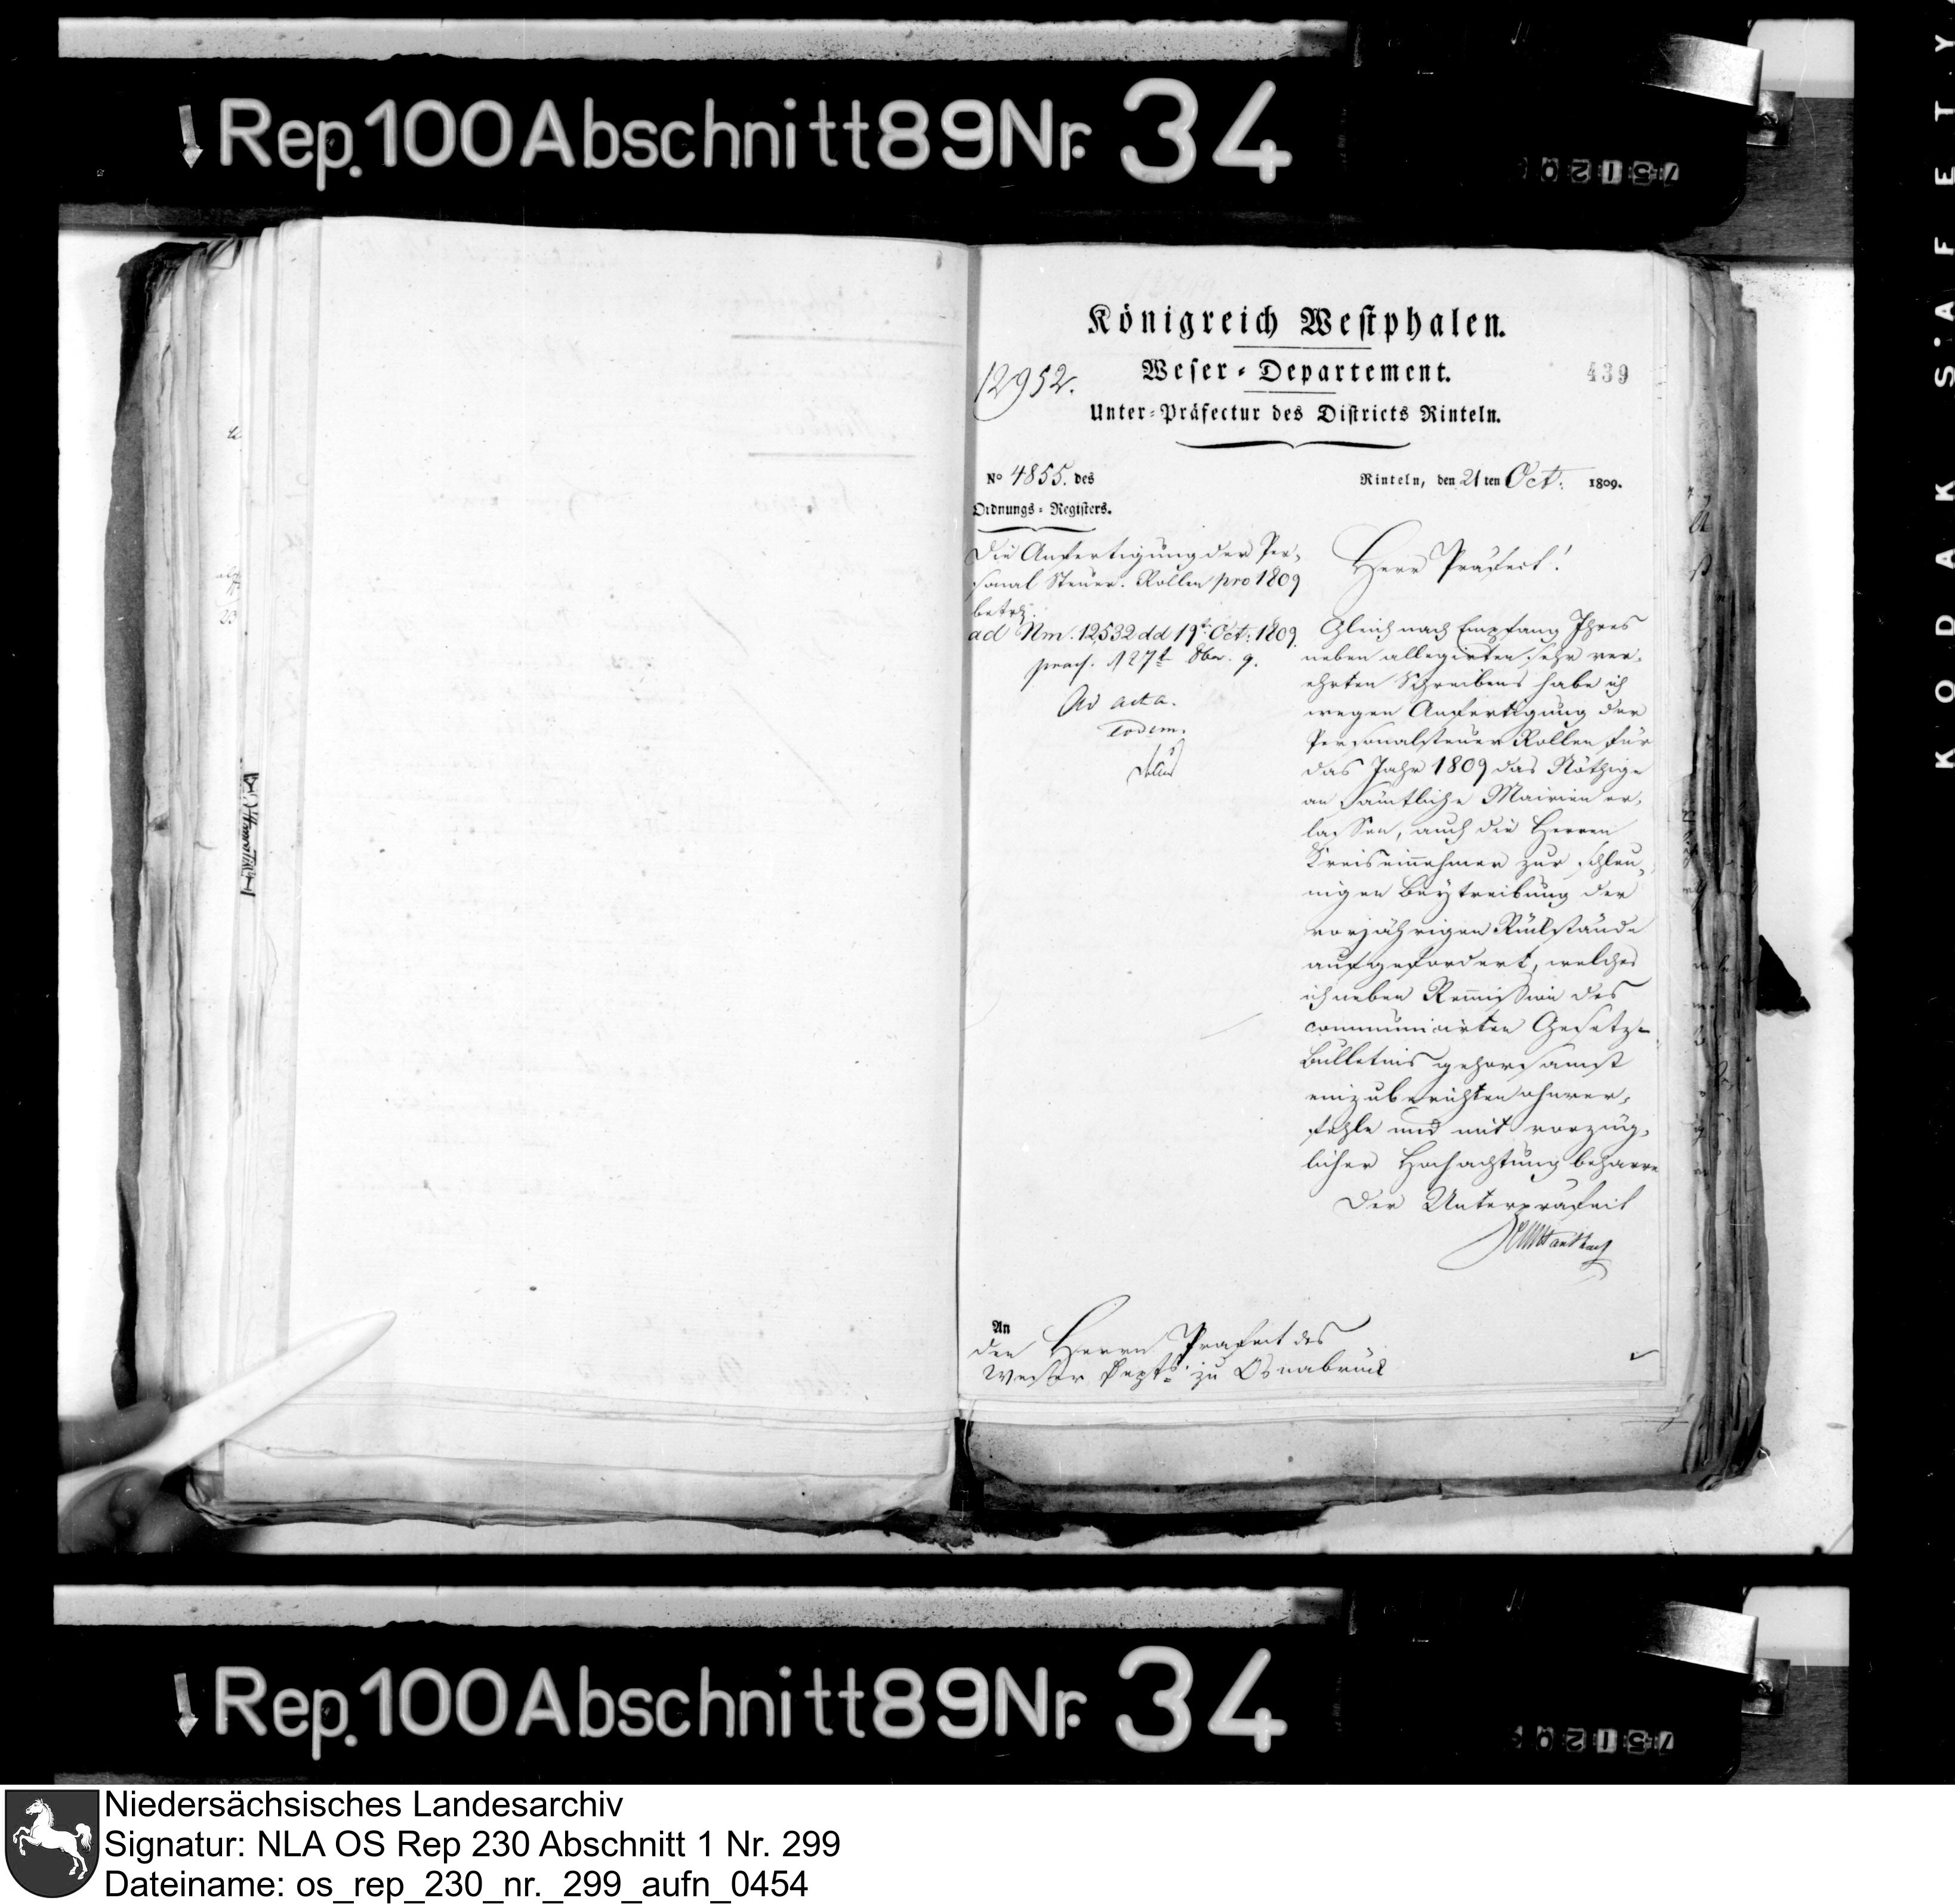 Rep. 100 Abschnitt 89 Nr. 34
Königreich Westphalen.
12952.
Weser-Departement.
439
Unter-Präfectur des Districts Rinteln.
No 4855. des
Ordnungs-Registers.
Rinteln, den 21ten Oct: 1809.
Die Anfertigung der Per-
sonal Steuer-Rollen pro 1809
betr.
ad Nm. 12,532 dd 19t Oct: 1809.
praes. d 27t 8br. 9.
Ad acta.
Eodem.
Herr Präfect!
Gleich nach Empfang Ihres
neben allegirten sehr ver-
ehrten Schreibens habe ich
wegen Anfertigung der
Personalsteuer Rollen für
das Jahr 1809 das Nöthige
an sämtliche Mairien er-
lassen, auch die Herren
Kreiseinnehmer zur schleu-
nigen Beytreibung der
vorjährigen Rückstände
aufgefordert, welches
ich neben Remission des
communicirten Gesetz-
Bulletins gehorsamst
einzuberichten ohnver-
fehle und mit vorzüg-
licher Hochachtung beharre
Der Unterpräfect
An
den Herrn Präfect des
Weser Dept. zu Osnabrück
Rep. 100 Abschnitt 89 Nr. 34
KODAK SAFETY
Niedersächsisches Landesarchiv
Signatur: NLA OS Rep 230 Abschnitt 1 Nr. 299
Dateiname: os_rep_230_nr._299_aufn_0454